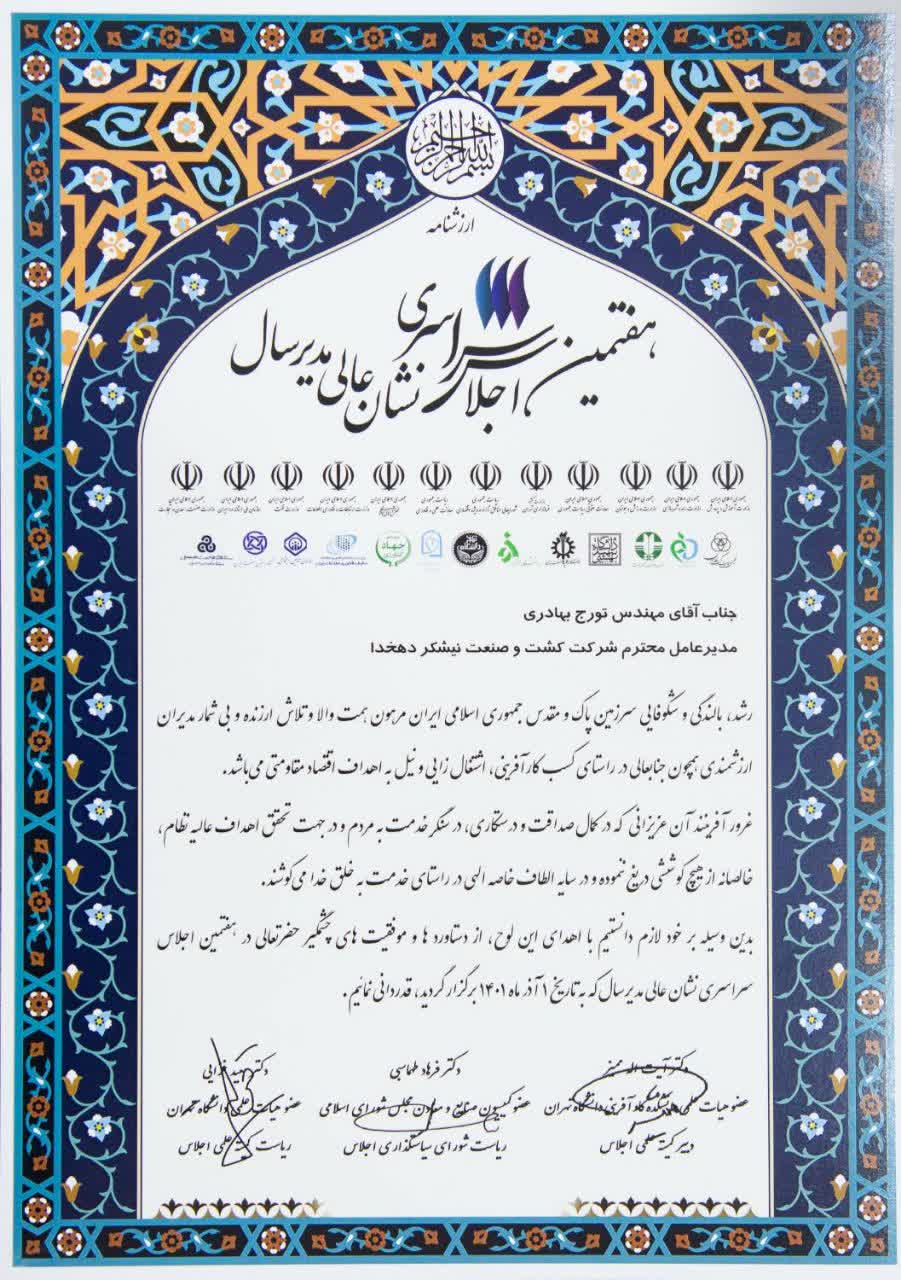 بسم الله الرحمن الرحیم
ارزشنامه
هفتمین اجلاس سراسری
نشان عالی مدیر سال
جناب آقای مهندس تورج بهادری
مدیرعامل محترم شرکت کشت و صنعت نیشکر دهخدا
رشد، بالندگی و شکوفایی سرزمین پاک و مقدس جمهوری اسلامی ایران مرهون همت والا و تلاش ارزنده و بی شمار مدیران
ارزشمندی همچون جنابعالی در راستای کسب کارآفرینی، اشتغال زایی و نیل به اهداف اقتصاد مقاومتی می‌باشد.
غرور آفرینند آن عزیزانی که در کمال صداقت و درستکاری، در سنگر خدمت به مردم و در جهت تحقق اهداف عالیه نظام،
خالصانه از هیچ کوششی دریغ ننموده و در سایه الطاف خاصه الهی در راستای خدمت به خلق خدا می‌کوشند.
بدین وسیله بر خود لازم دانستیم با اهدای این لوح، از دستاورد ها و موفقیت های چشمگیر حضرتعالی در هفتمین اجلاس
سراسری نشان عالی مدیر سال که به تاریخ ۱ آذر ماه ۱۴۰۱ برگزار گردید، قدردانی نمائیم.
دکتر آیت اله
عضو هیات علمی دانشکده کارآفرینی دانشگاه تهران
دبیر کمیته علمی اجلاس
دکتر فرهاد طهماسبی
عضو کمیسیون صنایع و معادن مجلس شورای اسلامی
ریاست شورای سیاستگذاری اجلاس
دکتر
عضو هیات علمی دانشگاه تهران
ریاست کمیته علمی اجلاس